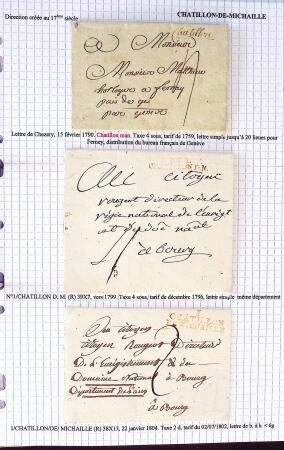 Direction créée au 17ème siècle
CHATILLON-DE-MICHAILLE
Chatillon
A Monsieur
Monsieur Matthieu
horloger a fernay
pais de gex
par geneve
Lettre de Chezery, 15 février 1790. Chatillon man. Taxe 4 sous, tarif de 1759, lettre simple jusqu'à 20 lieues pour
Ferney, distribution du bureau français de Genève
Au Citoyen
directeur de la
régie national de l'enregist
de bourg
N°1/CHATILLON D. M. (R) 39X7, vers 1799. Taxe 4 sous, tarif de décembre 1798, lettre simple même département
CHATILLON
citoyen Rougeot Directeur
De l'Enregistrement & du
Domaine National de Bourg
Departement de l'ain
à Bourg
1/CHATILLON/DE/ MICHAILLE (R) 38X13, 22 janvier 1804. Taxe 2 d, tarif du 02/07/1802, lettre de b. à b. < 6g